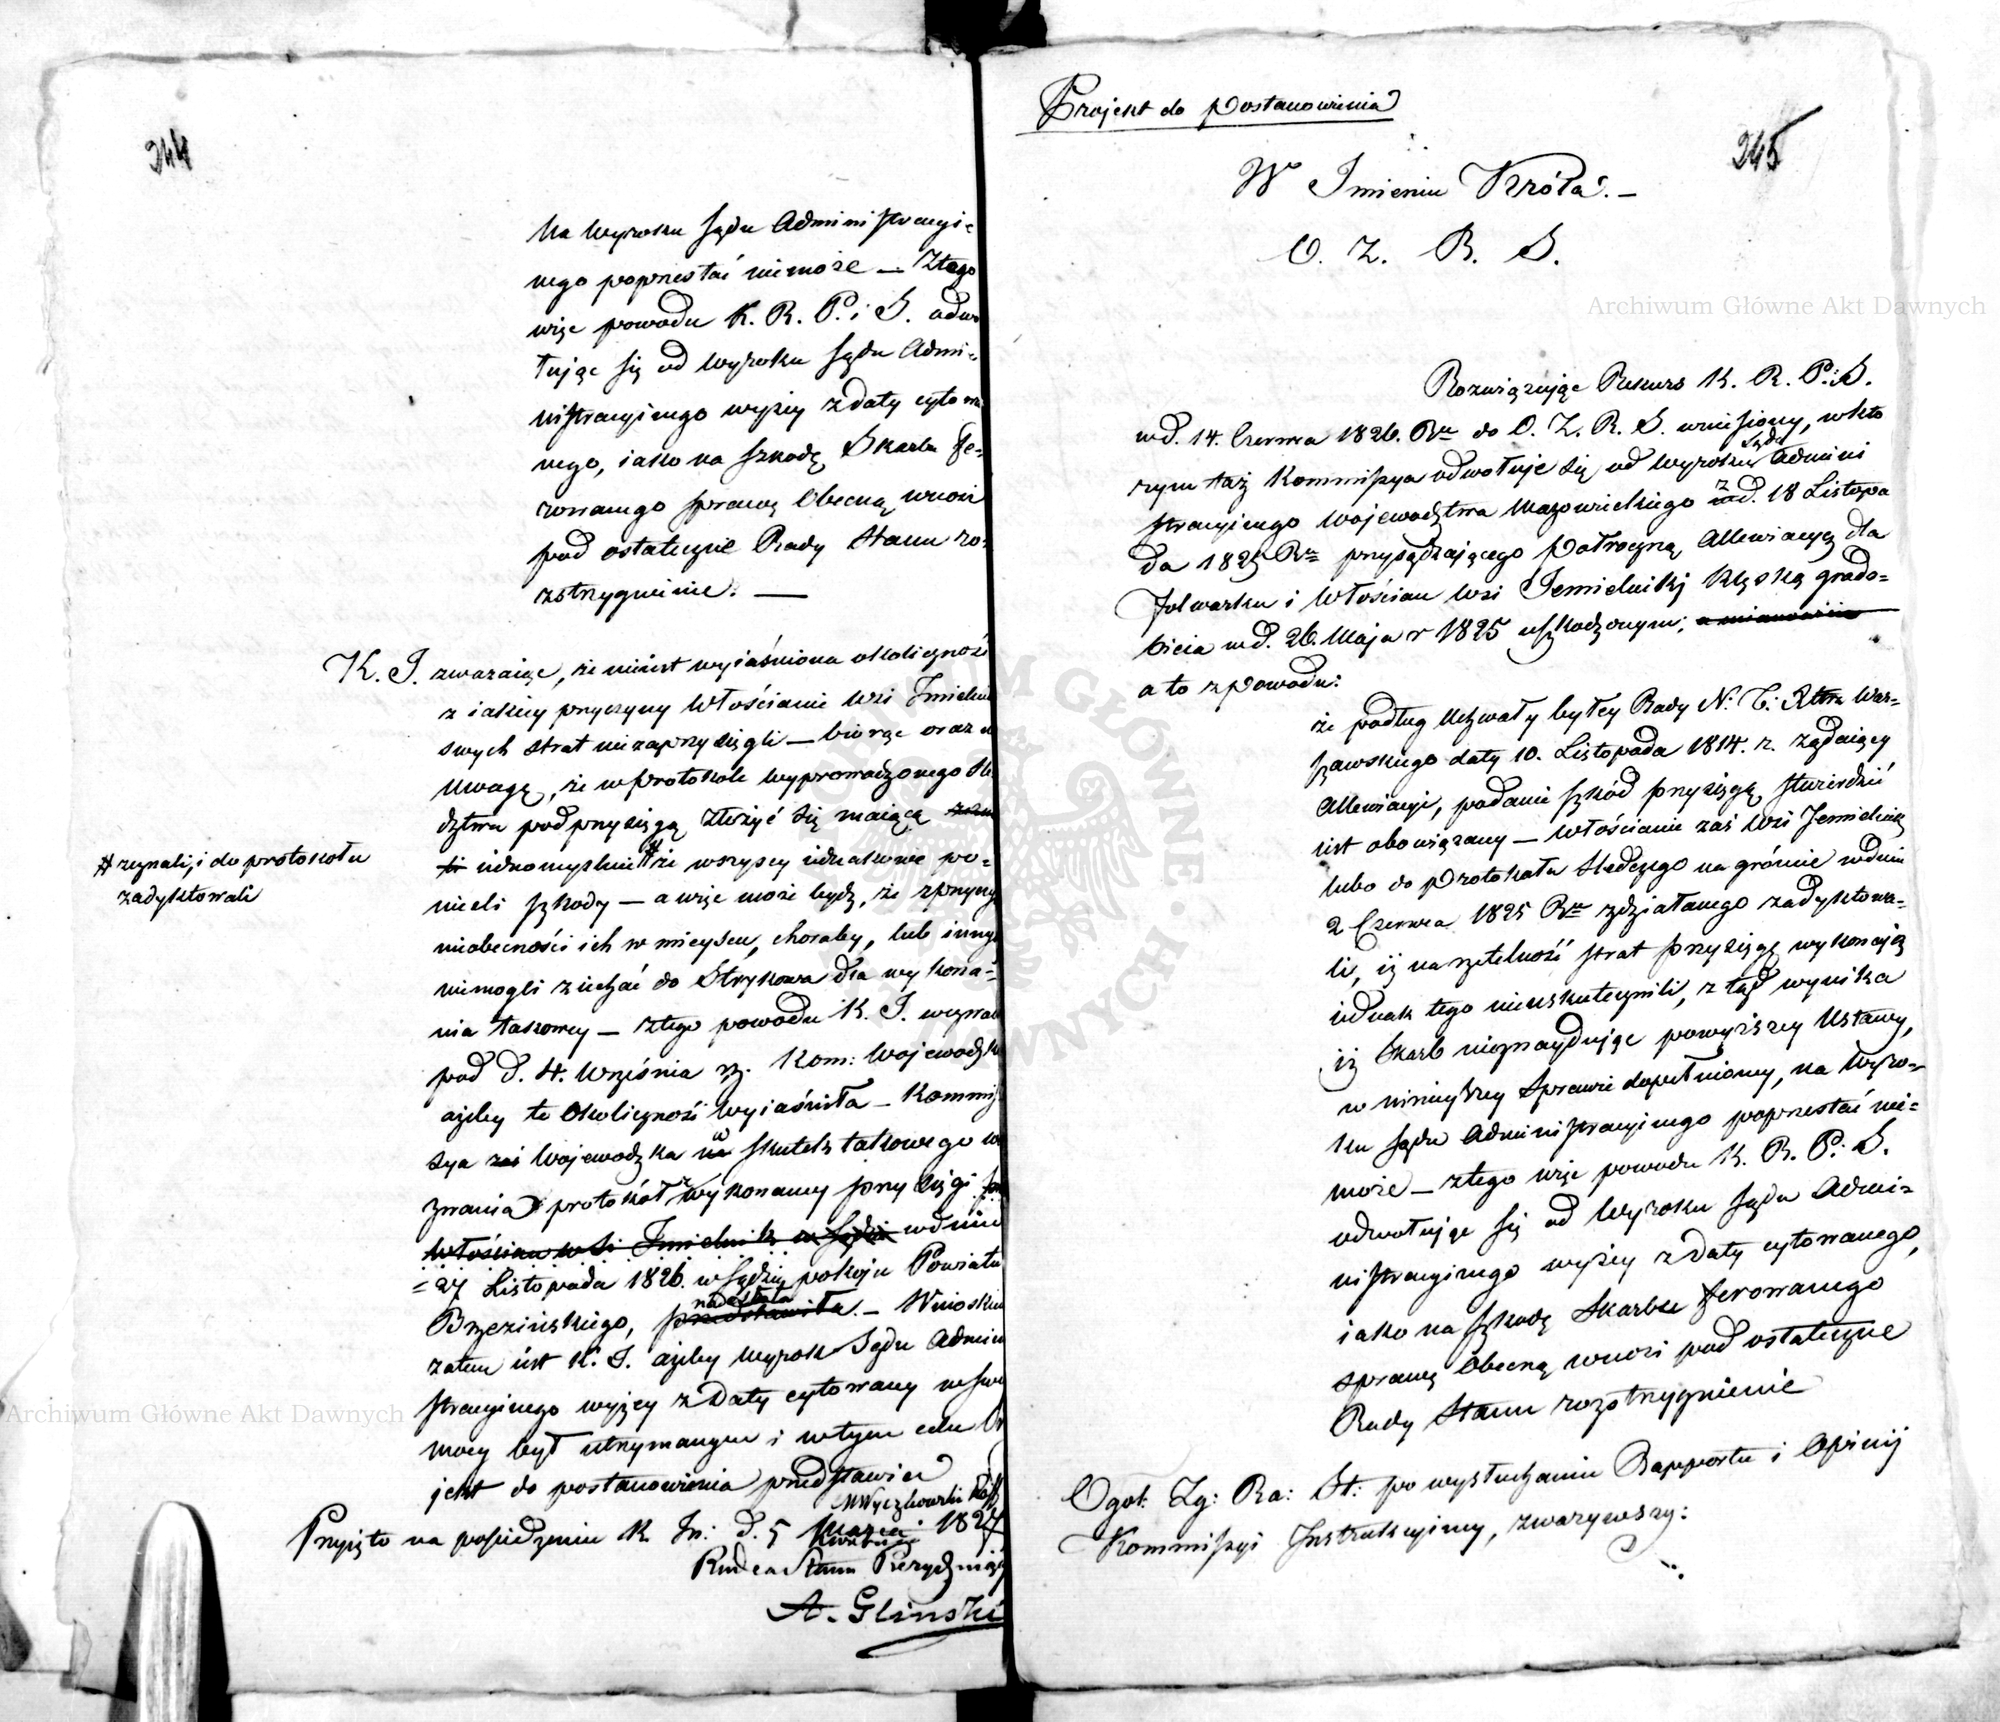 244
na Wyroku Sądu Administracyi-
nego poprzestać niemoże — Z tego
więc powodu K. R. P. i S. odwo
łuiąc się od wyroku Sądu Admi-
nistracyinego wyżey z daty cytowa
nego, iako na szkodę Skarbu fe-
rowanego sprawę Obecną wnosi
pod ostateczne Rady Stanu ro-
zstrzygnienie. —
K. I. zwazaiąc, że nieiest wyiaśniona okoliczność
z iakiey przyczyny Włościanie Wsi Jmielnik
swych strat niezaprzysięgli — biorąc oraz w
Uwagę, że w Protokole wyprowadzonego Śle
dztwa pod przysięgą złożyć się maiącą
iednomyślnie # że wszyscy iednakowe po-
# zeznali, i do protokółu
zadyktowali
nieśli szkody — a więc może bydź, że z przyczyny
nieobecności ich w mieyscu, choroby, lub innych
niemogli ziechać do Strykowa dla wykona-
nia takowey — z tego powodu K. I. wezwała
pod d. 4. Września r. z. Kom: Wojewodzką
ażeby tę Okoliczność wyiaśniła — Kommis
sya zaś Wojewodzka w skutek takowego we
zwania protokół wykonaney przysięgi przez
Włościan wsi Jmielnik w Sądzie w dniu
= 27 Listopada 1826. w Sądzie pokoju Powiatu
Brzezińskiego, przedstawiła nadesłała. — Wnioskiem
zatem iest K. I. ażeby wyrok Sądu Admini
stracyinego wyżey z Daty cytowany w swey
mocy był utrzymanym i w tym celu Pro
jekt do postanowienia przedstawia
MWyczechowski Reff
Przyięto na posiedzeniu K. In: d. 5 Marca Kwietnia 1827
Radca Stanu Prezyduiący
A. Glinski
Projekt do Postanowienia
245
W Imieniu Króla. —
O. Z. R. S.
Rozwiązuiąc Rekurs K. R. P. i S.
w d. 14. Czerwca 1826. Rku do O. Z. R. S. wniesiony, w któ
rym taż Kommissya odwołuje się od Wyroku Sądu Admini
stracyinego Województwa Mazowieckiego z d. 18 Listopa
da 1825 Rku przysądzaiącego Potroczną Allewiacyą dla
Folwarku i Włościan wsi Jemielnik klęską grado-
bicia w d. 26. Maja r 1825 uszkodzonym; a mianowicie
a to z powodu:
że podług Uchwały byłey Rady N. T. Xtwa War-
szawskiego daty 10. Listopada 1814. r. żądaiący
Allewiacyi, podanie szkód przysięgą stwierdzić
iest obowiązany — Włościanie zaś wsi Jemielnik
lubo do Protokółu śledczego na gróncie w dniu
2 Czerwca 1825 Rku zdziałanego zadyktowa-
li, iż na rzetelność strat przysięgę wykonają
iednak tego nieuskutecznili, z tąd wynika
iż Skarb nieznayduiąc powyższey Ustawy,
w ninieyszey Sprawie dopełnioney, na Wyro-
ku Sądu Administracyinego poprzestać nie-
może — z tego więc powodu K. R. P. i S.
odwołując się od Wyroku Sądu Admi-
nistracyinego wyżey z Daty cytowanego,
iako na szkodę Skarbu ferowanego
sprawę Obecną wnosi pod ostateczne
Rady Stanu rozstrzygnienie
Ogól: Zg: Ra: St: po wysłuchaniu Rapportu i Opinij
Kommissyi Instrukcyiney, zważywszy:
Archiwum Główne Akt Dawnych
Archiwum Główne Akt Dawnych